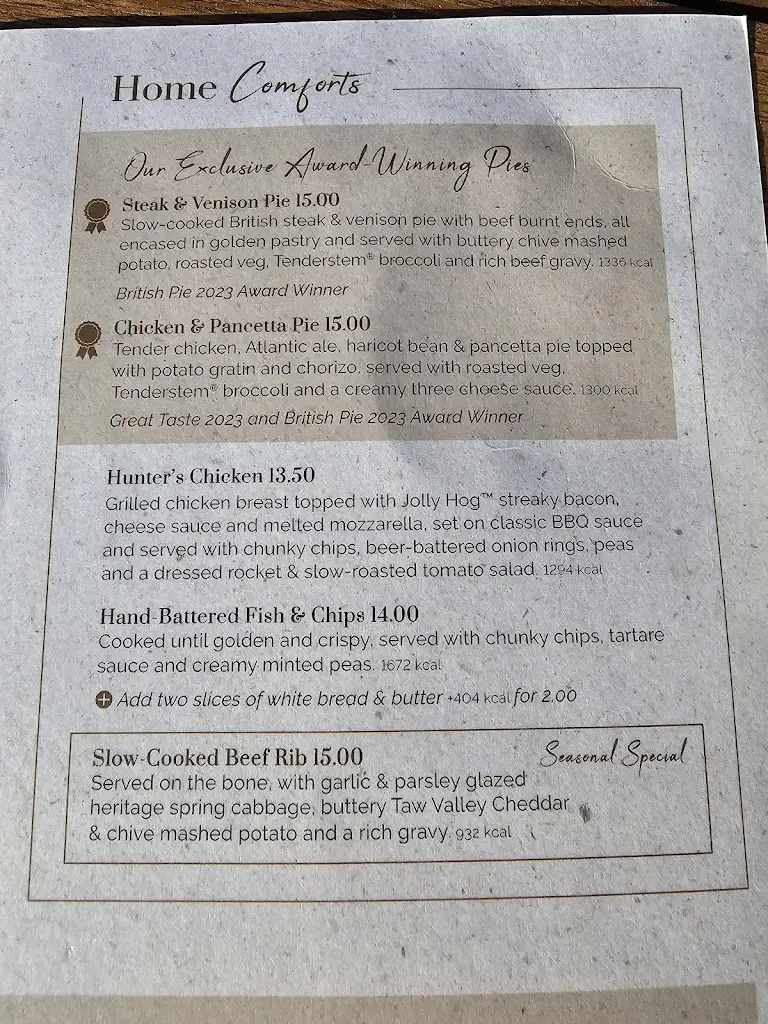 Home Comforts
Our Exclusive Award-Winning Pies
Steak & Venison Pie 15.00
Slow-cooked British steak & venison pie with beef burnt ends, all
encased in golden pastry and served with buttery chive mashed
potato, roasted veg, Tenderstem® broccoli and rich beef gravy. 1336 kcal
British Pie 2023 Award Winner
Chicken & Pancetta Pie 15.00
Tender chicken, Atlantic ale, haricot bean & pancetta pie topped
with potato gratin and chorizo, served with roasted veg,
Tenderstem® broccoli and a creamy three cheese sauce. 1300 kcal
Great Taste 2023 and British Pie 2023 Award Winner
Hunter's Chicken 13.50
Grilled chicken breast topped with Jolly Hog™ streaky bacon,
cheese sauce and melted mozzarella, set on classic BBQ sauce
and served with chunky chips, beer-battered onion rings, peas
and a dressed rocket & slow-roasted tomato salad. 1294 kcal
Hand-Battered Fish & Chips 14.00
Cooked until golden and crispy, served with chunky chips, tartare
sauce and creamy minted peas. 1672 kcal
Add two slices of white bread & butter +404 kcal for 2.00
Slow-Cooked Beef Rib 15.00
Seasonal Special
Served on the bone, with garlic & parsley glazed
heritage spring cabbage, buttery Taw Valley Cheddar
& chive mashed potato and a rich gravy. 932 kcal